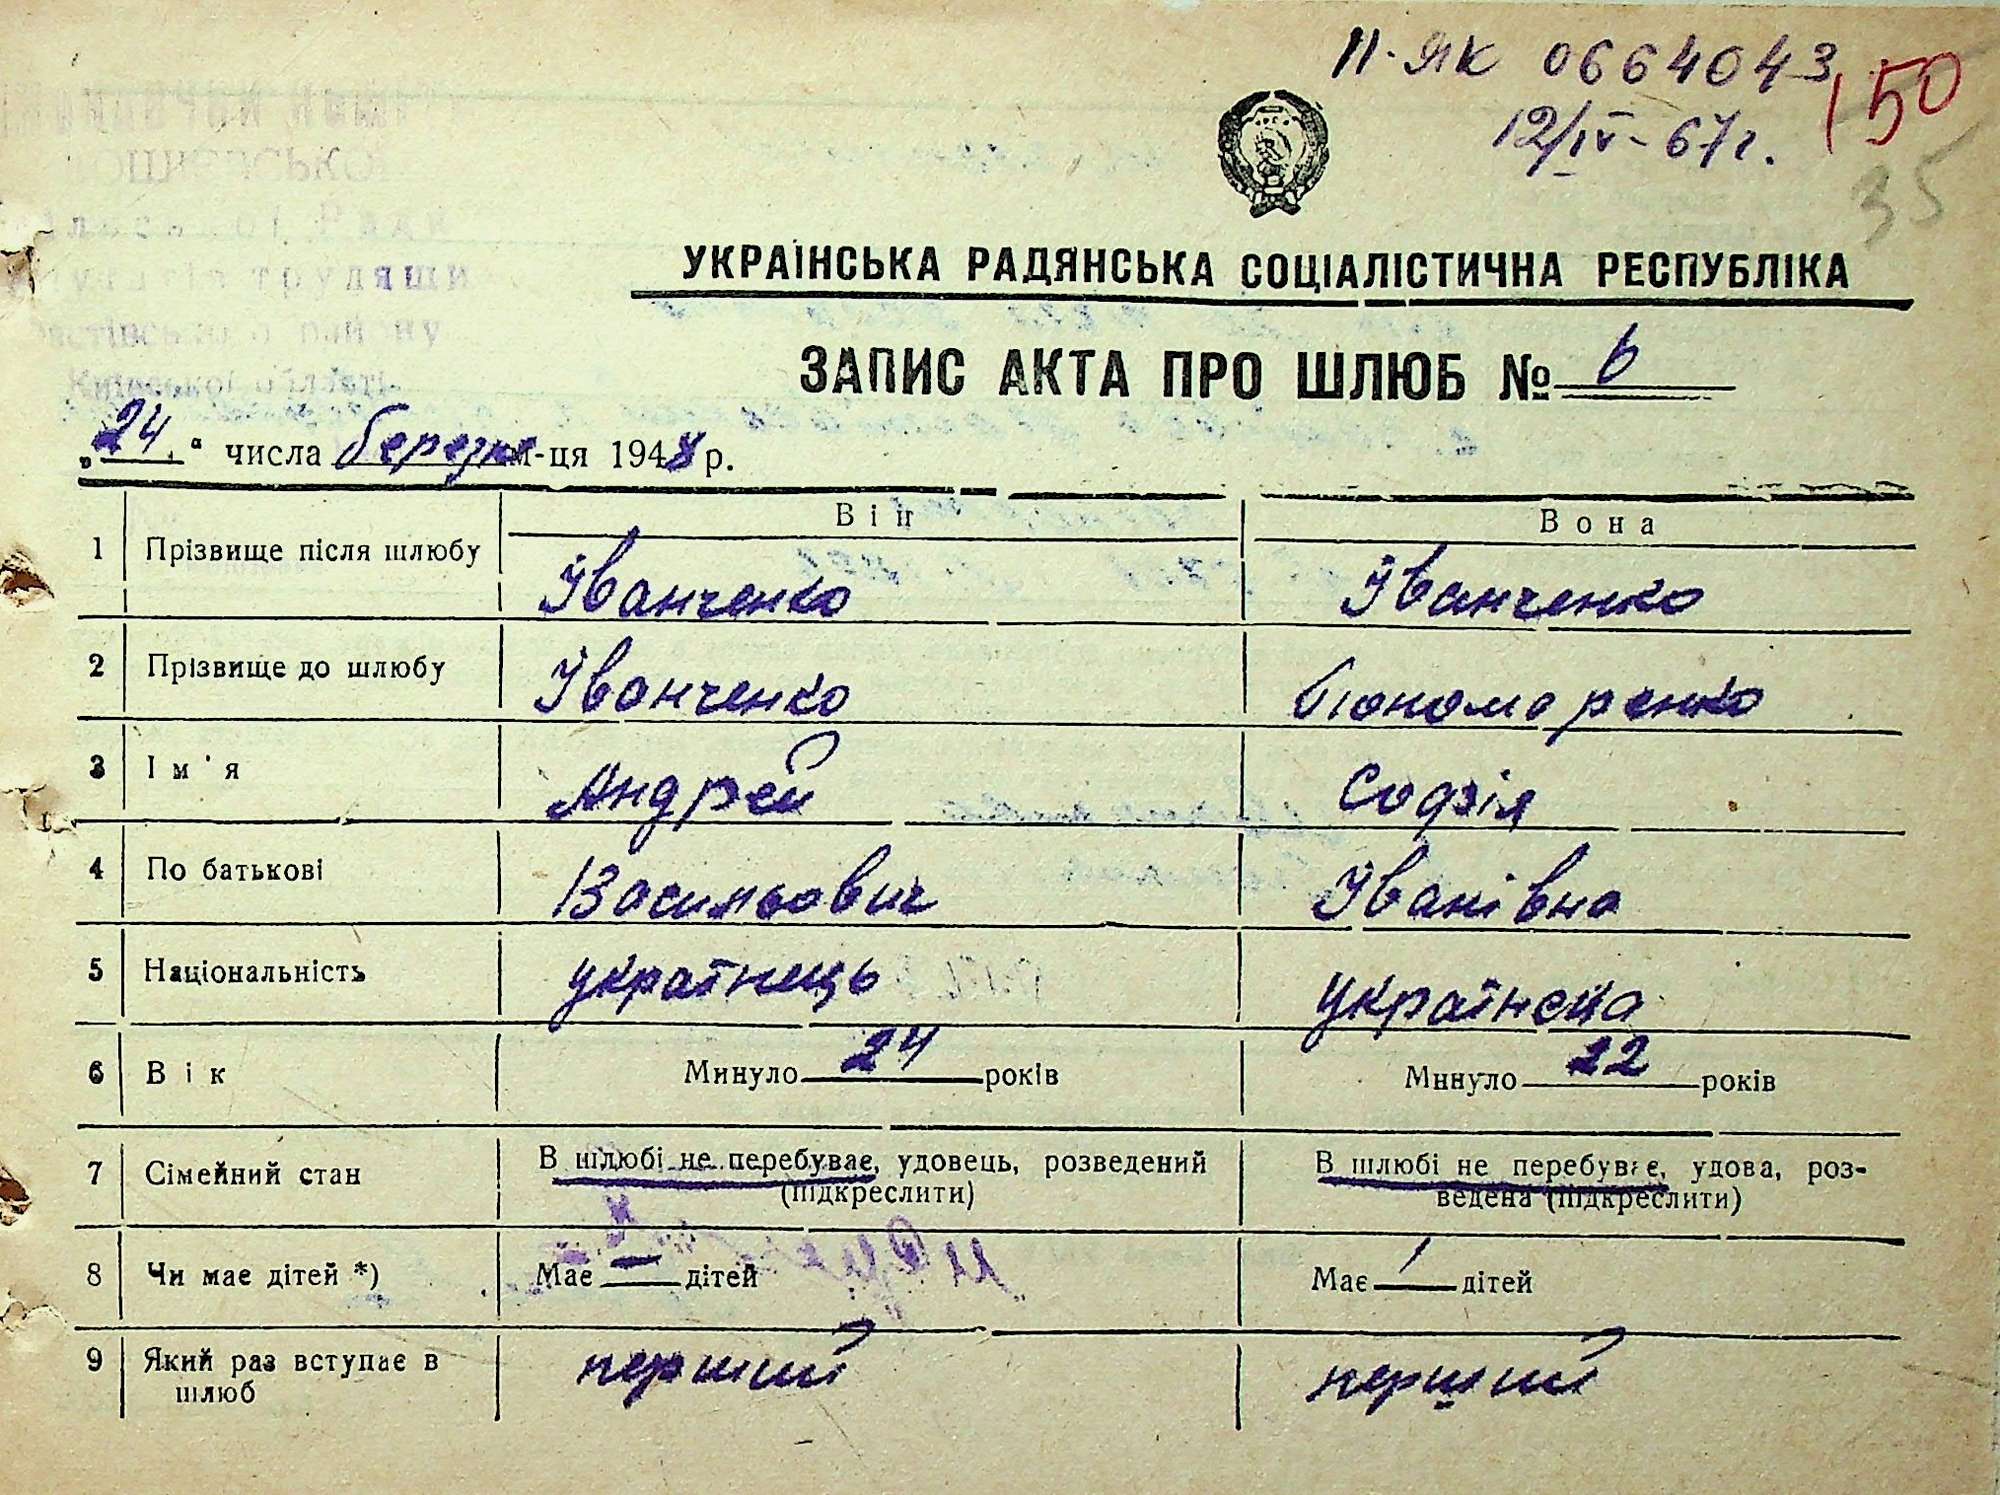 II-ЯК 0664043
12/IV-67г.
150
35
УКРАЇНСЬКА РАДЯНСЬКА СОЦІАЛІСТИЧНА РЕСПУБЛІКА
ЗАПИС АКТА ПРО ШЛЮБ № 6
„24“ числа березня м-ця 1948 р.
Він Вона
1 Прізвище після шлюбу Іванченко Іванченко
2 Прізвище до шлюбу Іванченко Пономаренко
3 Ім'я Андрей Софія
4 По батькові Васильович Іванівна
5 Національність українець українка
6 Вік Минуло 24 років Минуло 22 років
7 Сімейний стан В шлюбі не перебуває, удовець, розведений (підкреслити) В шлюбі не перебуває, удова, роз-
ведена (підкреслити)
8 Чи має дітей *) Має — дітей Має / дітей
9 Який раз вступає в шлюб перший перший